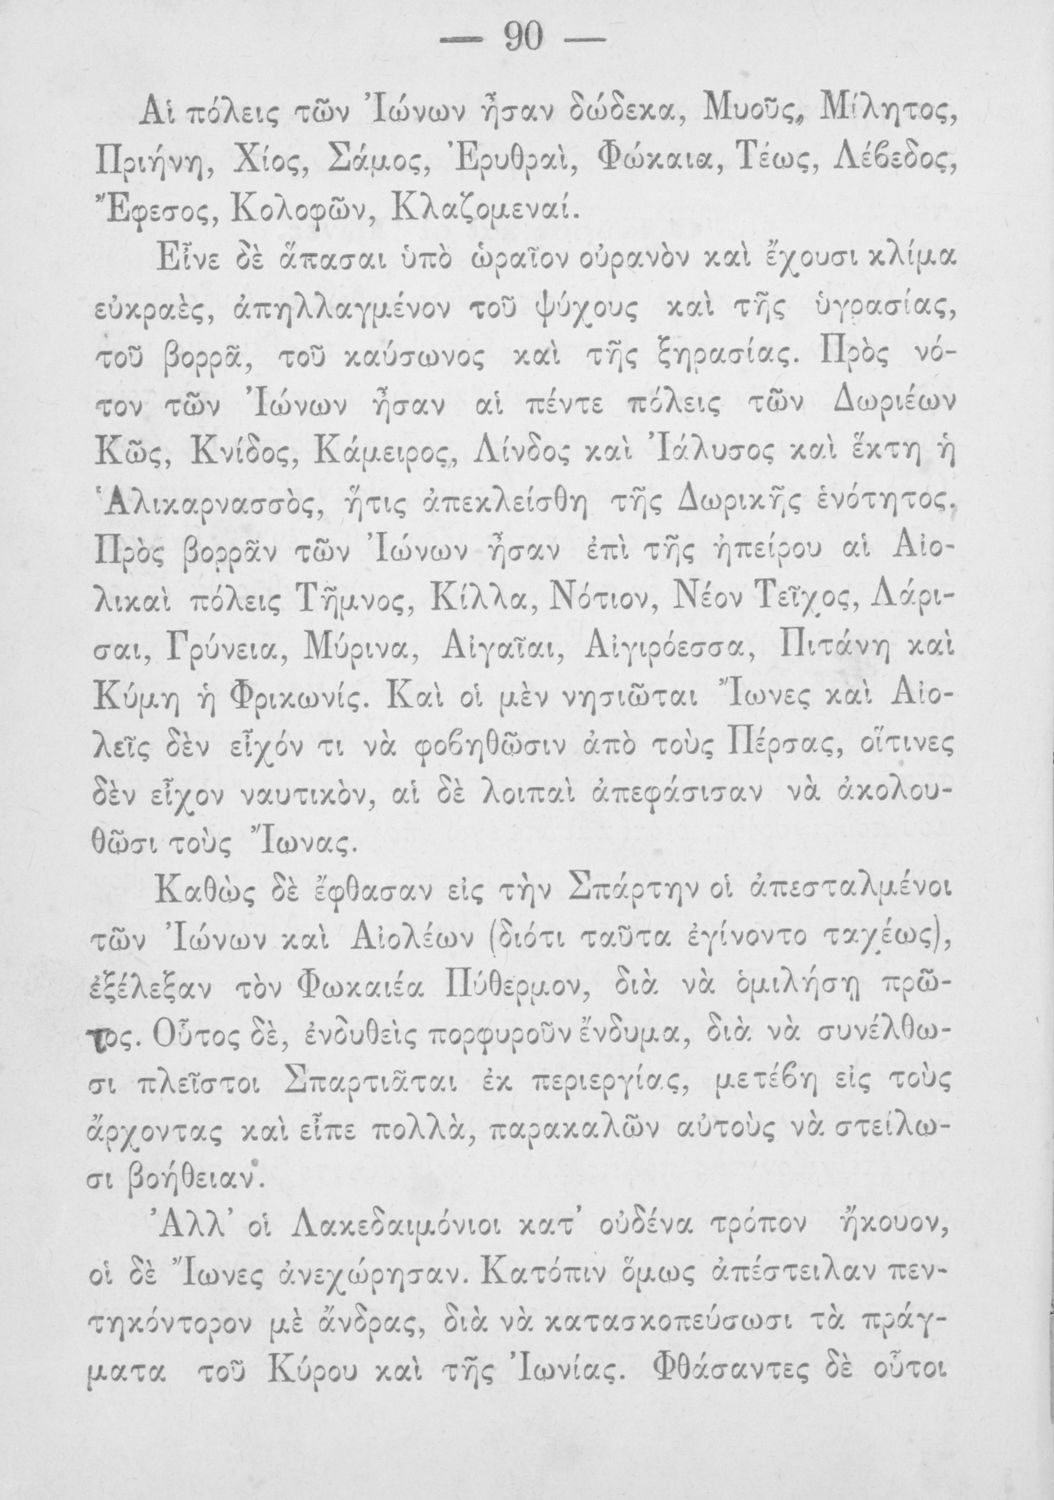 — 90 —
Αἱ πόλεις τῶν Ἰώνων ἦσαν δώδεκα, Μυοῦς, Μίλητος,
Πριήνη, Χίος, Σάμος, Ἐρυθραὶ, Φώκαια, Τέως, Λέβεδος,
Ἔφεσος, Κολοφῶν, Κλαζομεναί.
Εἶνε δὲ ἅπασαι ὑπὸ ὡραῖον οὐρανὸν καὶ ἔχουσι κλίμα
εὐκραὲς, ἀπηλλαγμένον τοῦ ψύχους καὶ τῆς ὑγρασίας,
τοῦ βορρᾶ, τοῦ καύσωνος καὶ τῆς ξηρασίας. Πρὸς νό-
τον τῶν Ἰώνων ἦσαν αἱ πέντε πόλεις τῶν Δωριέων
Κῶς, Κνίδος, Κάμειρος, Λίνδος καὶ Ἰάλυσος καὶ ἕκτη ἡ
Ἁλικαρνασσὸς, ἥτις ἀπεκλείσθη τῆς Δωρικῆς ἑνότητος.
Πρὸς βορρᾶν τῶν Ἰώνων ἦσαν ἐπὶ τῆς ἠπείρου αἱ Αἰο-
λικαὶ πόλεις Τῆμνος, Κίλλα, Νότιον, Νέον Τεῖχος, Λάρι-
σαι, Γρύνεια, Μύρινα, Αἰγαῖαι, Αἰγιρόεσσα, Πιτάνη καὶ
Κύμη ἡ Φρικωνίς. Καὶ οἱ μὲν νησιῶται Ἴωνες καὶ Αἰο-
λεῖς δὲν εἶχόν τι νὰ φοβηθῶσιν ἀπὸ τοὺς Πέρσας, οἵτινες
δὲν εἶχον ναυτικὸν, αἱ δὲ λοιπαὶ ἀπεφάσισαν νὰ ἀκολου-
θῶσι τοὺς Ἴωνας.
Καθὼς δὲ ἔφθασαν εἰς τὴν Σπάρτην οἱ ἀπεσταλμένοι
τῶν Ἰώνων καὶ Αἰολέων (διότι ταῦτα ἐγίνοντο ταχέως),
ἐξέλεξαν τὸν Φωκαιέα Πύθερμον, διὰ νὰ ὁμιλήσῃ πρῶ-
τος. Οὗτος δὲ, ἐνδυθεὶς πορφυροῦν ἔνδυμα, διὰ νὰ συνέλθω-
σι πλεῖστοι Σπαρτιᾶται ἐκ περιεργίας, μετέβη εἰς τοὺς
ἄρχοντας καὶ εἶπε πολλὰ, παρακαλῶν αὐτοὺς νὰ στείλω-
σι βοήθειαν.
Ἀλλ’ οἱ Λακεδαιμόνιοι κατ’ οὐδένα τρόπον ἤκουον,
οἱ δὲ Ἴωνες ἀνεχώρησαν. Κατόπιν ὅμως ἀπέστειλαν πεν-
τηκόντορον μὲ ἄνδρας, διὰ νὰ κατασκοπεύσωσι τὰ πράγ-
ματα τοῦ Κύρου καὶ τῆς Ἰωνίας. Φθάσαντες δὲ οὗτοι